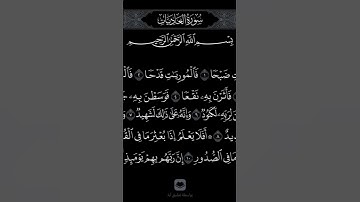 سُورَةُ العَادِيَاتِ
بِسْمِ اللَّهِ الرَّحْمَٰنِ الرَّحِيمِ
ضَبْحًا ١ فَالْمُورِيَٰتِ قَدْحًا ٢
فَأَثَرْنَ بِهِۦ نَقْعًا ٤ فَوَسَطْنَ بِهِۦ
لِرَبِّهِۦ لَكَنُودٌ ٦ وَإِنَّهُۥ عَلَىٰ ذَٰلِكَ لَشَهِيدٌ ٧
۞ أَفَلَا يَعْلَمُ إِذَا بُعْثِرَ مَا فِي
مَا فِي الصُّدُورِ ١٠ إِنَّ رَبَّهُم بِهِمْ يَوْمَئِذٍ